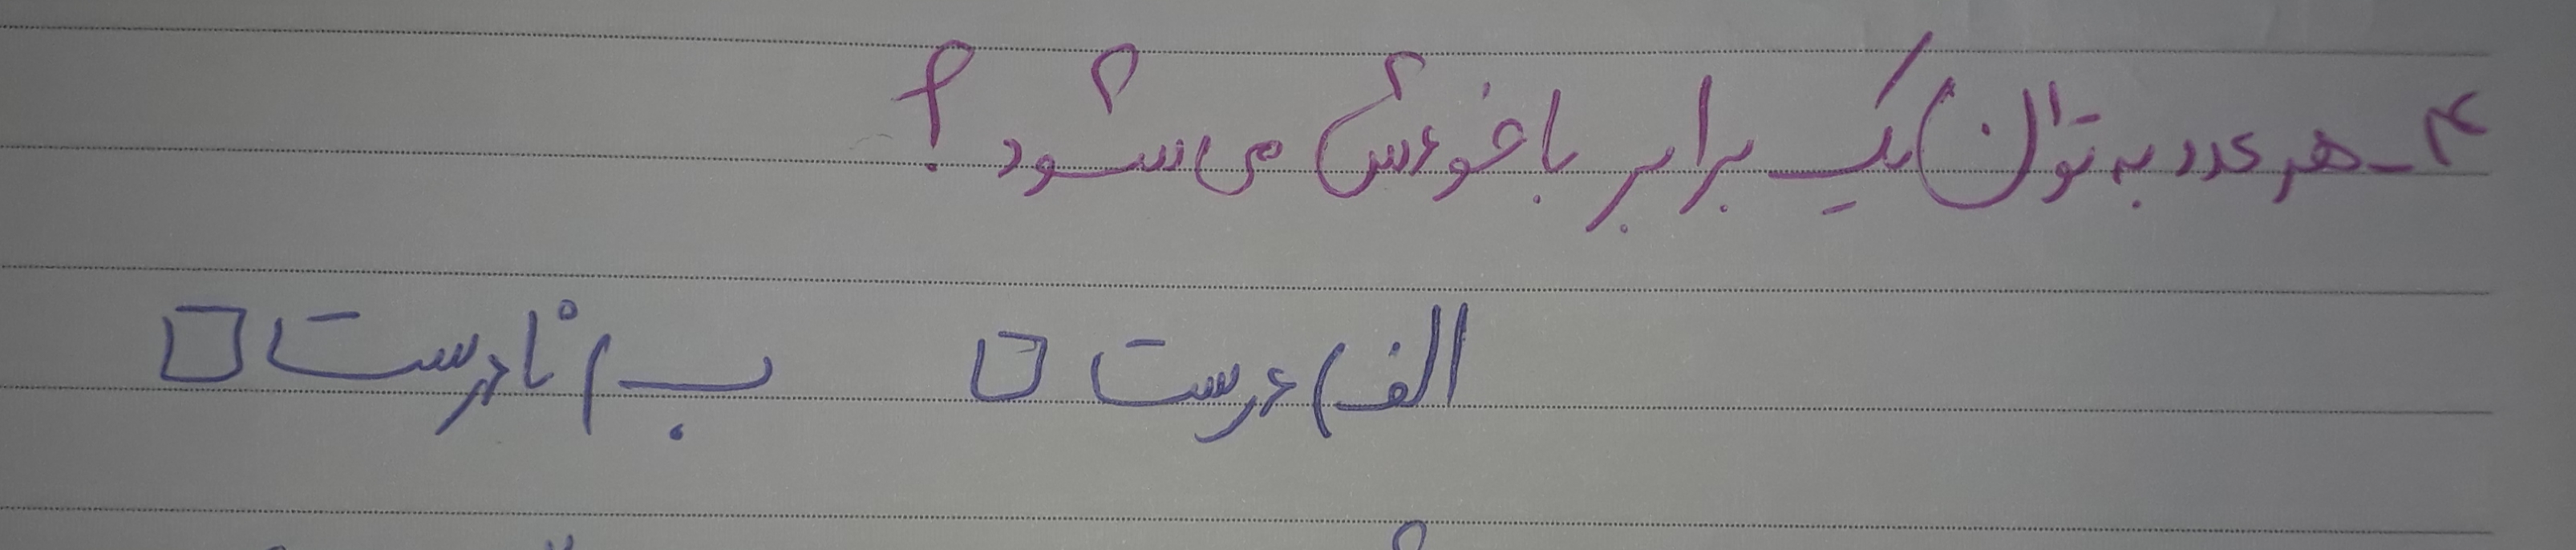 ۴- هر عدد به توان یک برابر با خودش می شود ؟
الف) درست □ ب) نادرست □